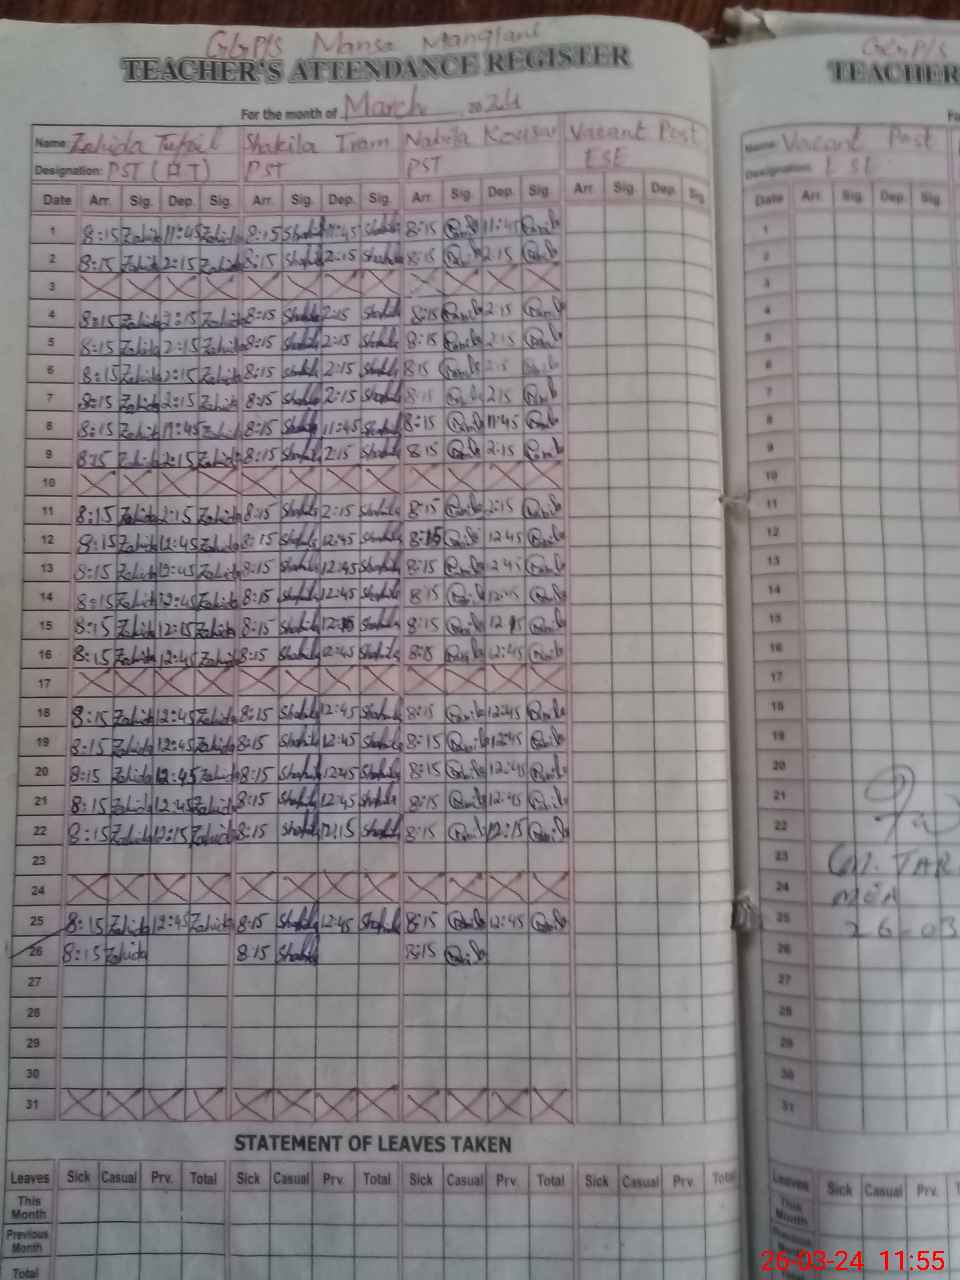 GGP/S Mansa Manglani
TEACHER'S ATTENDANCE REGISTER
For the month of March 2024
Name: Zahida Tufail Shakila Iram Nabila Kousar Vacant Post
Designation: PST (H.T) PST PST ESE
Date Arr. Sig. Dep. Sig. Arr. Sig. Dep. Sig. Arr. Sig. Dep. Sig. Arr. Sig. Dep. Sig.
1 8:15 Zahida 11:45 Zahida 8:15 Shakila 11:45 Shakila 8:15 11:45
2 8:15 Zahida 2:15 Zahida 8:15 Shakila 2:15 Shakila 8:15 2:15
3
4 8:15 Zahida 2:15 Zahida 8:15 Shakila 2:15 Shakila 8:15 2:15
5 8:15 Zahida 2:15 Zahida 8:15 Shakila 2:15 Shakila 8:15 2:15
6 8:15 Zahida 2:15 Zahida 8:15 Shakila 2:15 Shakila 8:15 2:15
7 8:15 Zahida 2:15 Zahida 8:15 Shakila 2:15 Shakila 8:15 2:15
8 8:15 Zahida 11:45 Zahida 8:15 Shakila 11:45 Shakila 8:15 11:45
9 8:15 Zahida 2:15 Zahida 8:15 Shakila 2:15 Shakila 8:15 2:15
10
11 8:15 Zahida 2:15 Zahida 8:15 Shakila 2:15 Shakila 8:15 2:15
12 8:15 Zahida 12:45 Zahida 8:15 Shakila 12:45 Shakila 8:15 12:45
13 8:15 Zahida 12:45 Zahida 8:15 Shakila 12:45 Shakila 8:15 12:45
14 8:15 Zahida 12:45 Zahida 8:15 Shakila 12:45 Shakila 8:15 12:45
15 8:15 Zahida 12:15 Zahida 8:15 Shakila 12:15 Shakila 8:15 12:15
16 8:15 Zahida 12:45 Zahida 8:15 Shakila 12:45 Shakila 8:15 12:45
17
18 8:15 Zahida 12:45 Zahida 8:15 Shakila 12:45 Shakila 8:15 12:45
19 8:15 Zahida 12:45 Zahida 8:15 Shakila 12:45 Shakila 8:15 12:45
20 8:15 Zahida 12:45 Zahida 8:15 Shakila 12:45 Shakila 8:15 12:45
21 8:15 Zahida 12:45 Zahida 8:15 Shakila 12:45 Shakila 8:15 12:45
22 8:15 Zahida 12:15 Zahida 8:15 Shakila 12:15 Shakila 8:15 12:15
23
24
25 8:15 Zahida 12:45 Zahida 8:15 Shakila 12:45 Shakila 8:15 12:45
26 8:15 Zahida 8:15 Shakila 8:15
27
28
29
30
31
STATEMENT OF LEAVES TAKEN
Leaves Sick Casual Prv. Total Sick Casual Prv. Total Sick Casual Prv. Total Sick Casual Prv. Total
This Month
Previous Month
Total
GGP/S
TEACHER
Name: Vacant Post
Designation: ESE
Date Arr. Sig. Dep. Sig.
1
2
3
4
5
6
7
8
9
10
11
12
13
14
15
16
17
18
19
20
21
22
23
24 MEA
25 26-03
26
27
28
29
30
31
Leaves Sick Casual Prv.
This Month
26-03-24 11:55